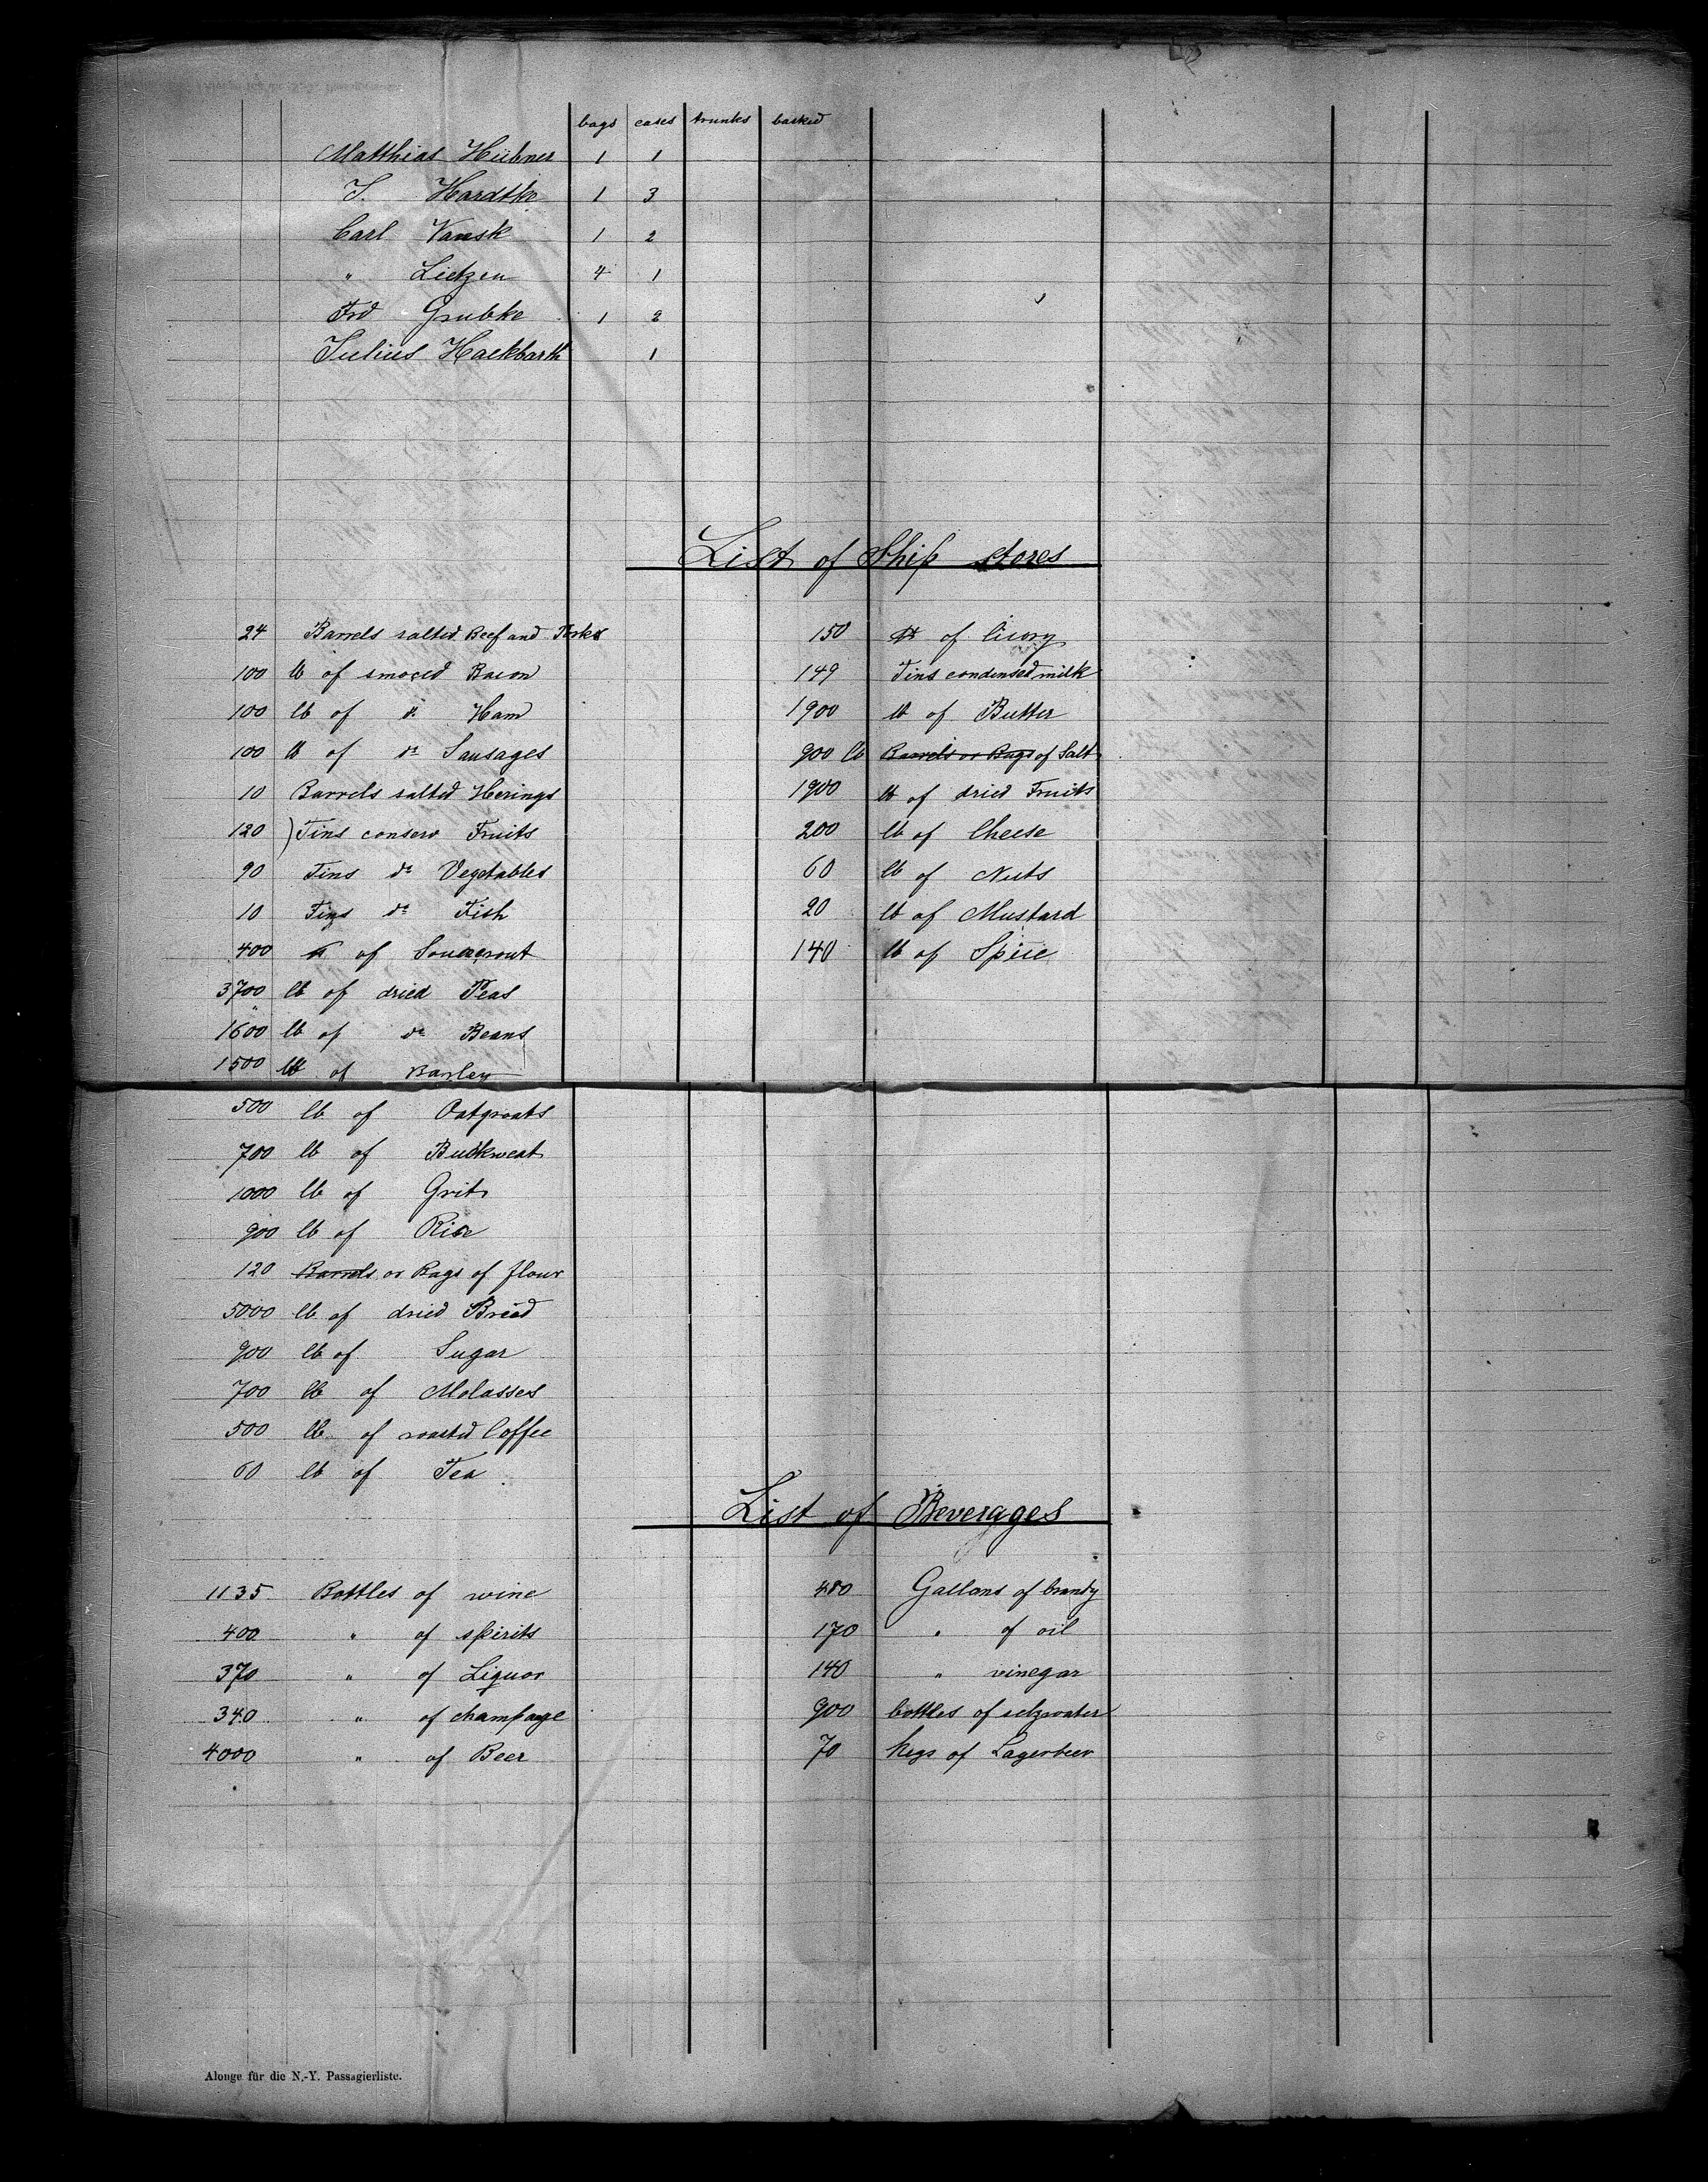 bags cases trunks basked
Matthias Hübner 1 1
J. Hardtke 1 3
Carl Vansk 1 2
" Lietzen 4 1
Frd Grubke 1 2
Julius Hackbarth 1
List of Ship stores
24 Barrels salted Beef and Porks
100 lb of smoced Bacon
100 lb of do Ham
100 lb of do Sausages
10 Barrels salted Herings
120 Tins conserv Fruits
90 Tins do Vegetables
10 Tins do Fish
400 lb of Souercrout
3700 lb of dried Peas
1600 lb of do Beans
1500 lb of Barley
500 lb of Oatgroats
700 lb of Buckweat
1000 lb of Grits
900 lb of Rice
120 Barrels or Bags of flour
5000 lb of dried Bread
900 lb of Sugar
700 lb of Molasses
500 lb of roasted Coffee
60 lb of Tea
150 lb of Cicory
149 Tins condensed milk
1900 lb of Butter
900 lb Barrels or Bags of Salt
1900 lb of dried Fruits
200 lb of Cheese
60 lb of Nuts
20 lb of Mustard
140 lb of Spice
List of Beverages
1135 Bottles of wine
400 " of spirits
370 " of Liquor
340 " of champage
4000 " of Beer
480 Gallons of brandy
170 " of oil
140 " vinegar
900 bottles of selzwater
70 kegs of Lagerbeer
Alonge für die N.-Y. Passagierliste.